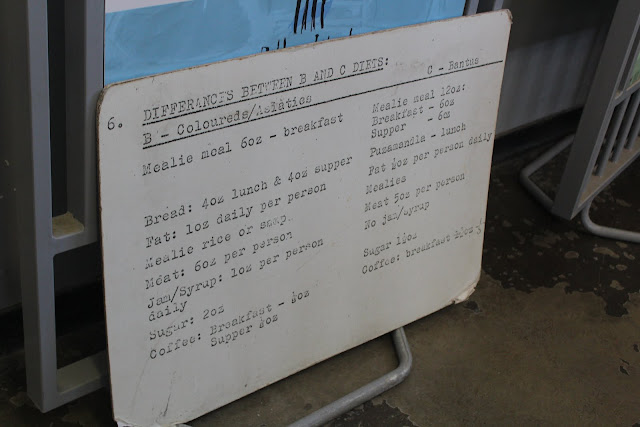 6. DIFFERANCES BETWEEN B AND C DIETS:
B - Coloureds/Asiatics
Mealie meal 6oz - breakfast
Bread: 4oz lunch & 4oz supper
Fat: 1oz daily per person
Mealie rice or samp
Meat: 6oz per person
Jam/Syrup: 1oz per person
daily
Sugar: 2oz
Coffee: Breakfast -
Supper
C - Bantus
Mealie meal 12oz:
Breakfast - 6oz
Supper - 6oz
Puzamandla - lunch
Fat per person daily
Mealies
Meat 5oz per person
No jam/syrup
Sugar
Coffee: breakfast